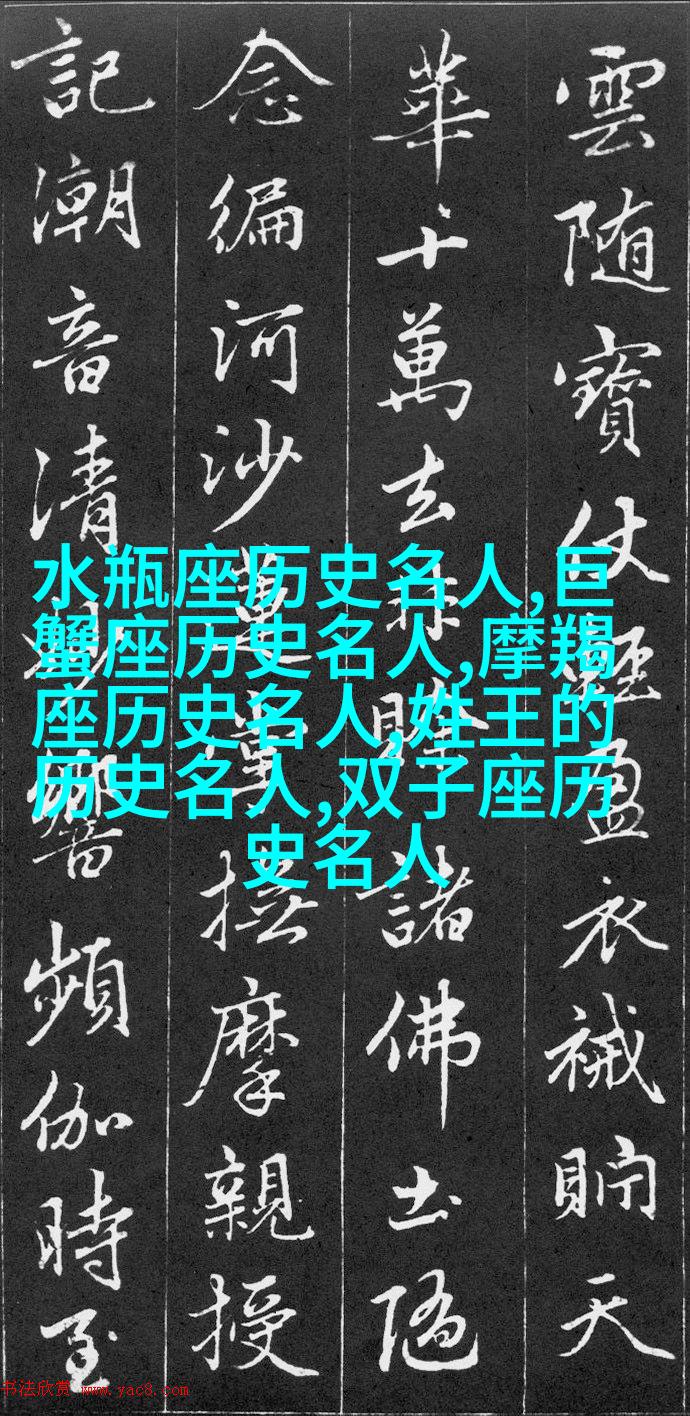 雲随寶仗輕盈衣裓貯天
華十萬去來賒諸佛土隨
念徧河沙蓮掌撫摩親授
記潮音清妙響頻伽時至
水瓶座历史名人,巨
蟹座历史名人,摩羯
座历史名人,姓王的
历史名人,双子座历
史名人
书法欣赏 www.yac8.com